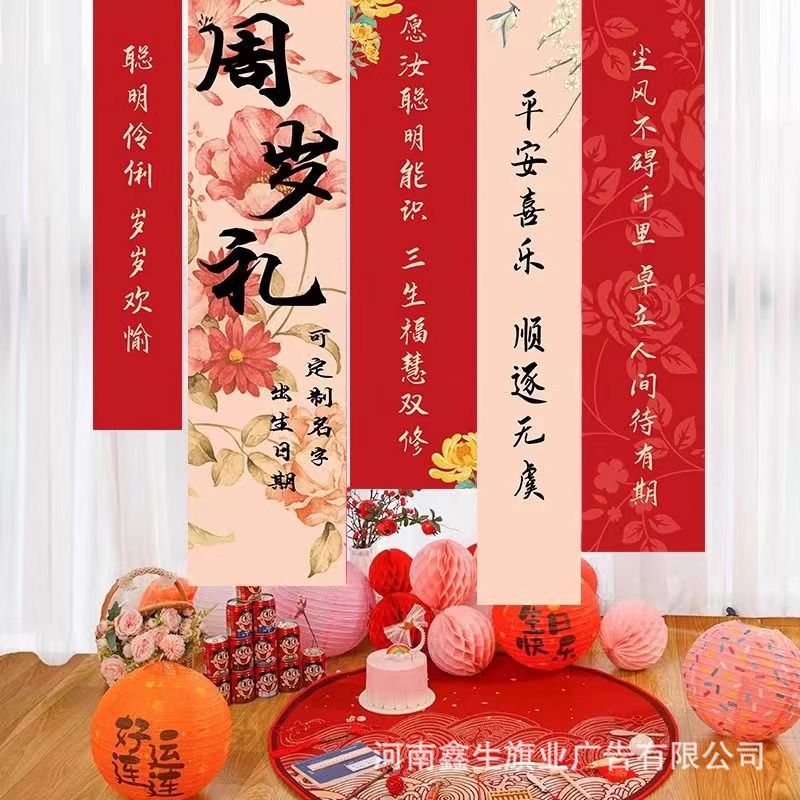 聪明伶俐 岁岁欢愉
周岁礼
可定制名字
出生日期
愿汝聪明能识 三生福慧双修
平安喜乐 顺遂无虞
尘风不碍千里 卓立人间待有期
生日
快乐
好运
连连
河南鑫生旗业广告有限公司